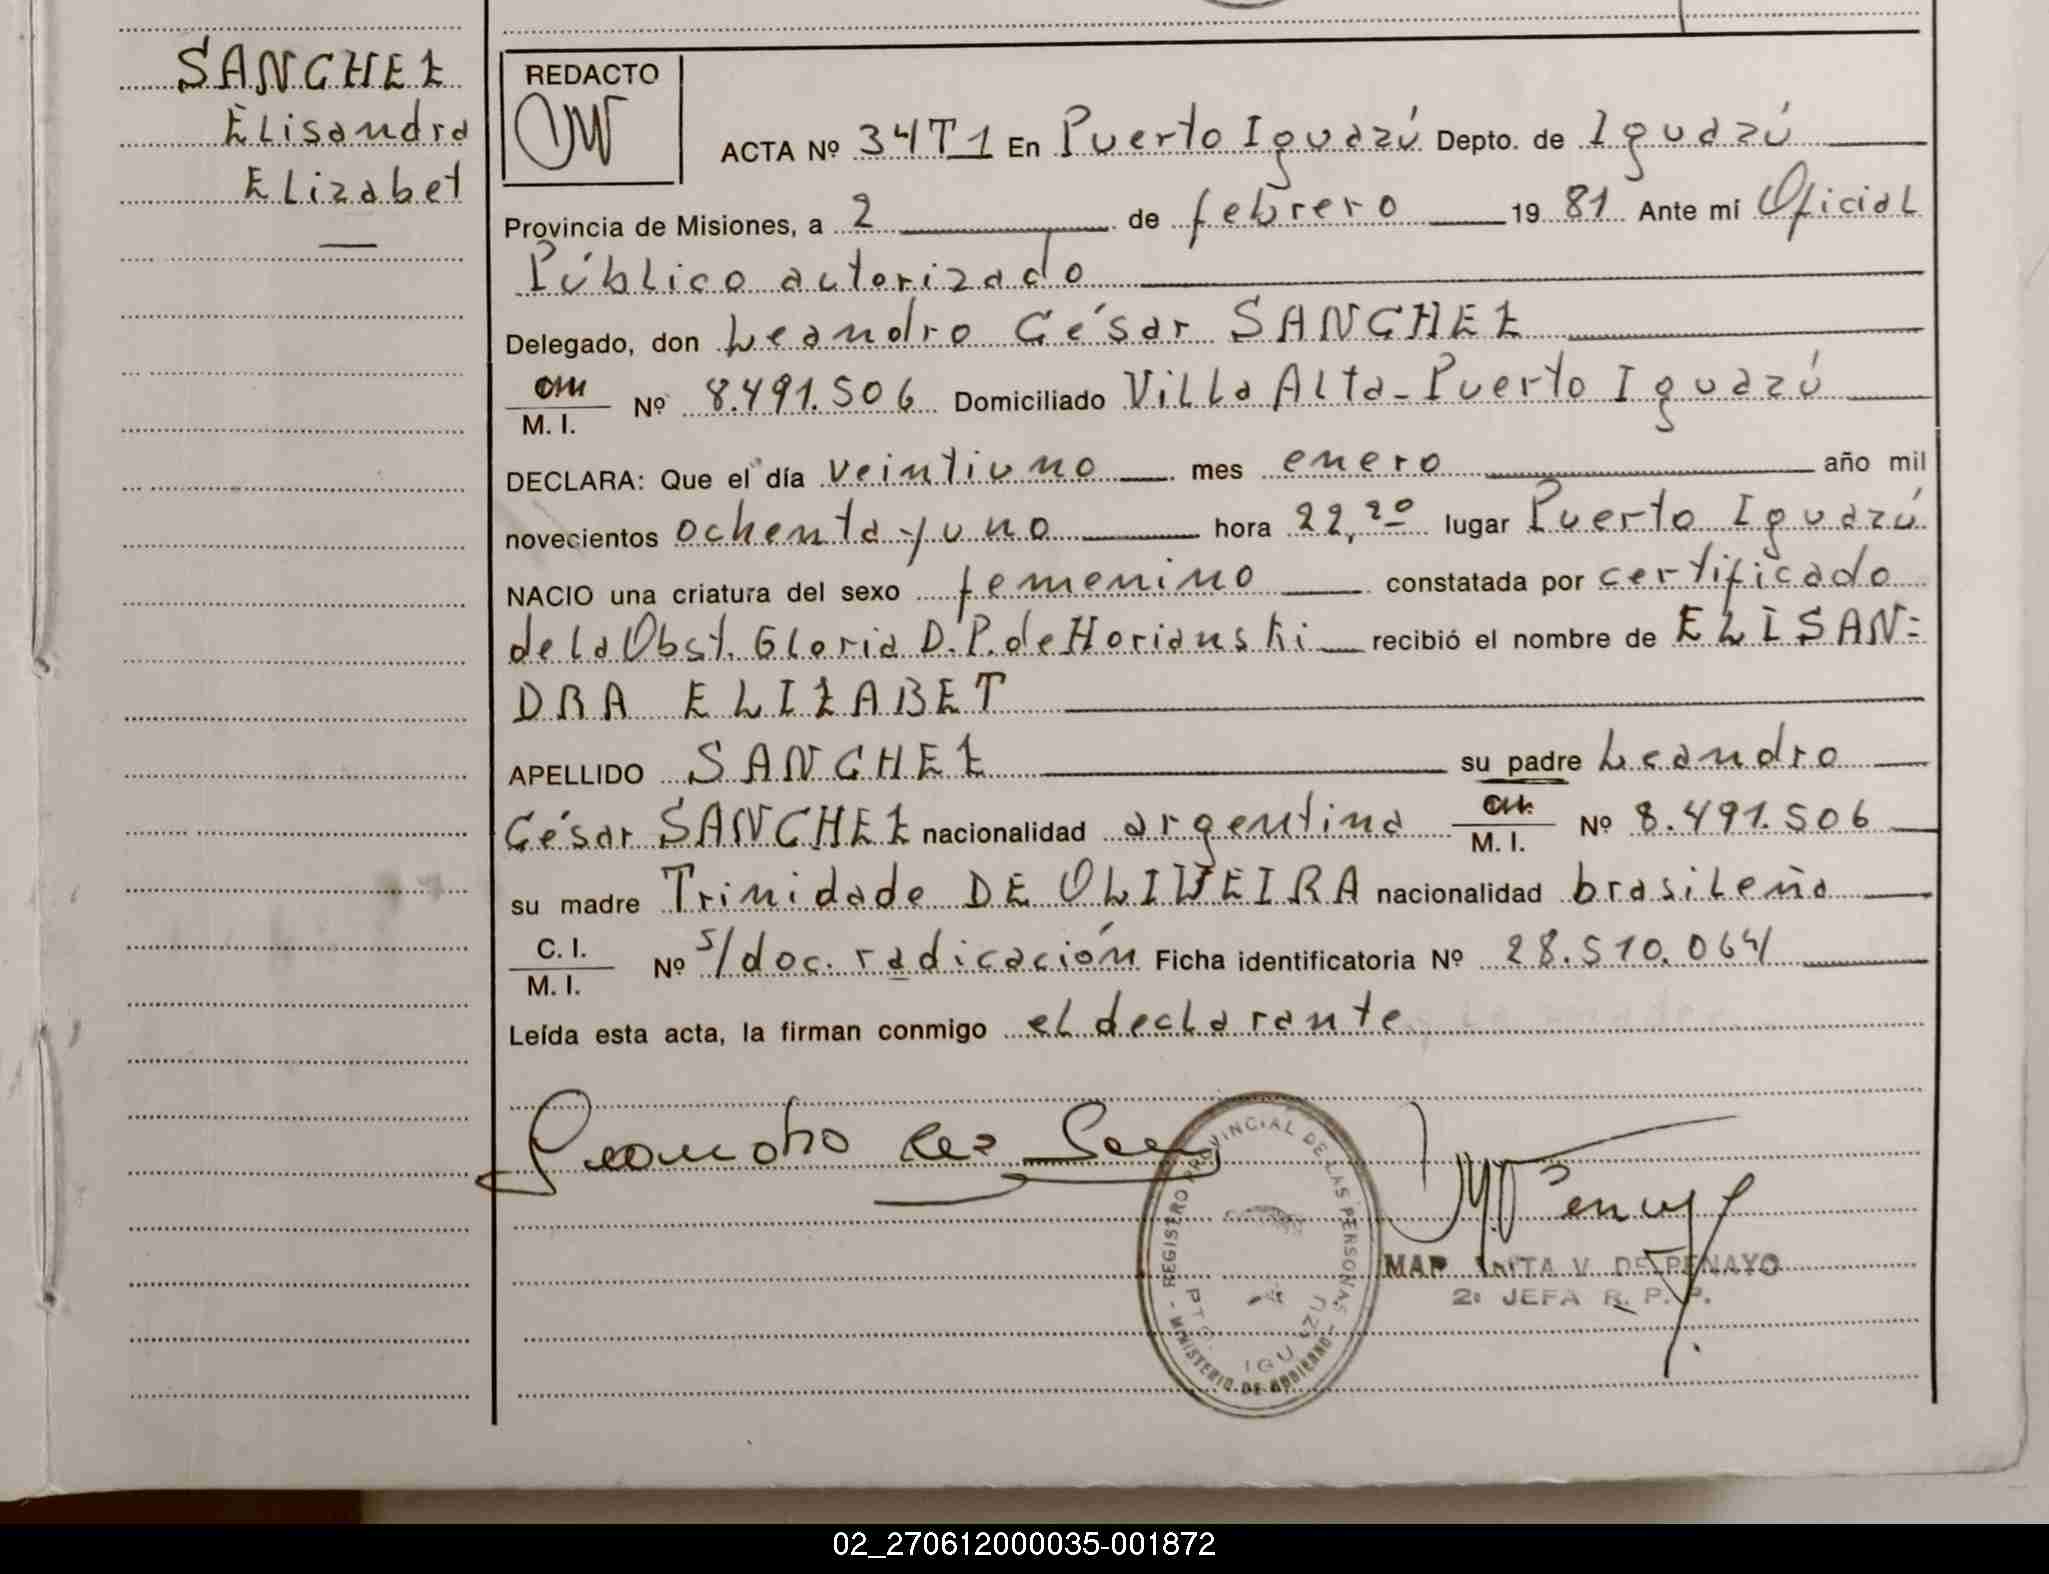 SANCHEZ
Elisandra
Elizabet
REDACTO
ACTA Nº 34T1 En Puerto Iguazú Depto. de Iguazú
Provincia de Misiones, a 2 de febrero 19 81 Ante mí Oficial
Público autorizado
Delegado, don Leandro César SANCHEZ
M. I. Nº 8.491.506 Domiciliado Villa Alta - Puerto Iguazú
DECLARA: Que el día veintiuno mes enero año mil
novecientos ochenta y uno hora 22,20 lugar Puerto Iguazú
NACIO una criatura del sexo femenino constatada por certificado
de la Obst. Gloria D.P. de Horianski recibió el nombre de ELISAN=
DRA ELIZABET
APELLIDO SANCHEZ su padre Leandro
César SANCHEZ nacionalidad argentina M. I. Nº 8.491.506
su madre Trinidade DE OLIVEIRA nacionalidad brasileña
C. I.
M. I. Nº s/doc. radicación Ficha identificatoria Nº 28.510.064
Leída esta acta, la firman conmigo el declarante
REGISTRO PROVINCIAL DE LAS PERSONAS
MINISTERIO DE GOBIERNO
PTO. IGUAZU
V. DE PENAYO
2º JEFA R. P. P.
02_270612000035-001872